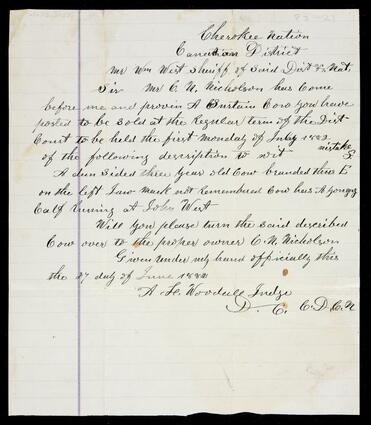 Cherokee Nation
Canadian District
Mr Wm West Sheriff of Said Dist & Nat.
Sir Mr C. N. Nicholson has Come
before me and provin A Surtain Cow you have
posted to be Sold at the Regular term of the Dist
Court to be held the first monday of July 1882
mistake
of the following description to wit
A dun Sided three year old Cow branded thus E
on the left Jaw mark not Remembered Cow has A young
Calf Running at John West
Will you please turn the said described
Cow over to the proper owner C. N. Nicholson
Given under my hand officially this
the 27 day of June 1882
A. H. Woodall Judge
D. C. C. D. C. N